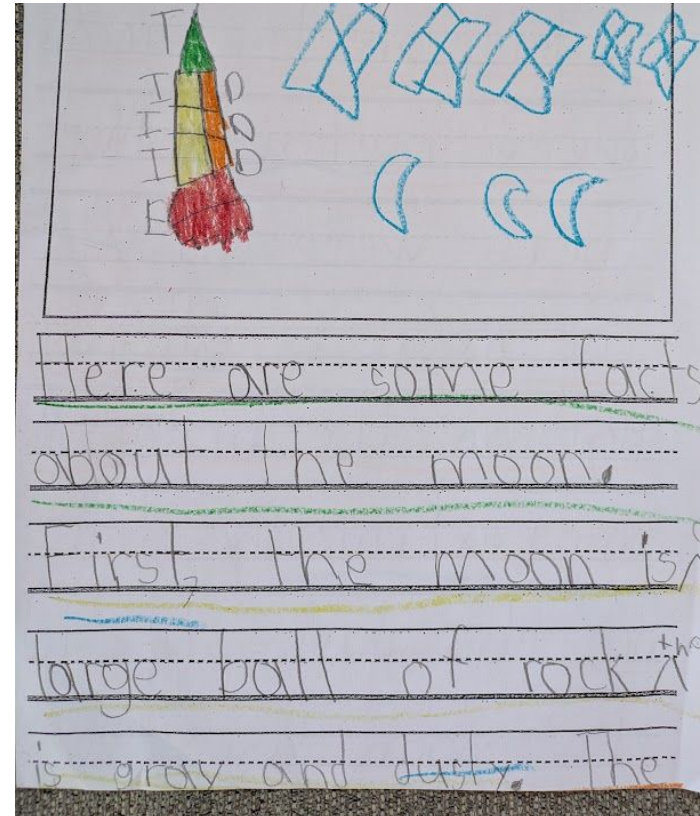 T
I D
I D
I D
E
Here are some facts
about the moon.
First, the moon is
large ball of rock ^
is gray and dusty. The